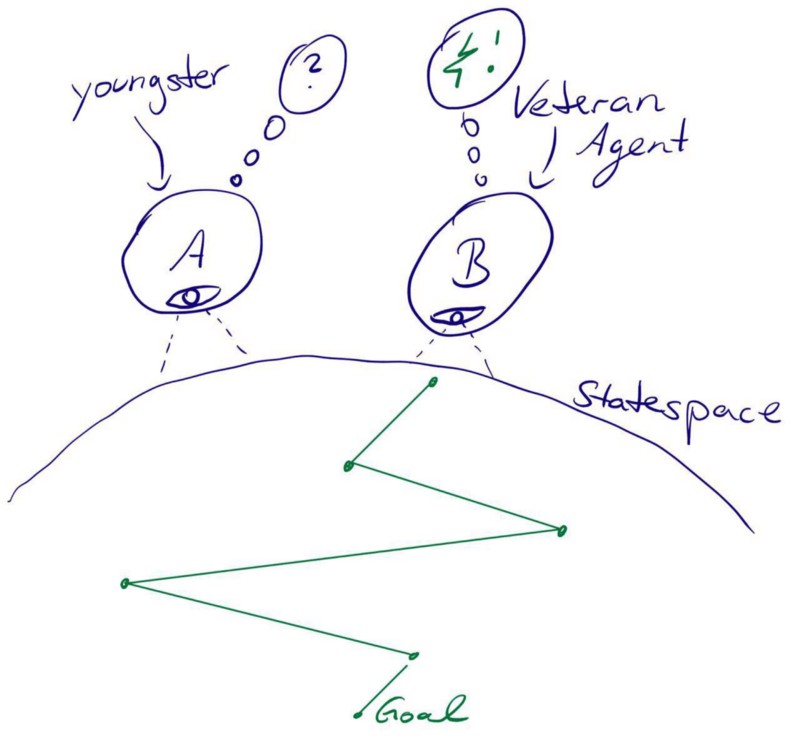 ?
!
youngster
Veteran
Agent
A
B
Statespace
Goal